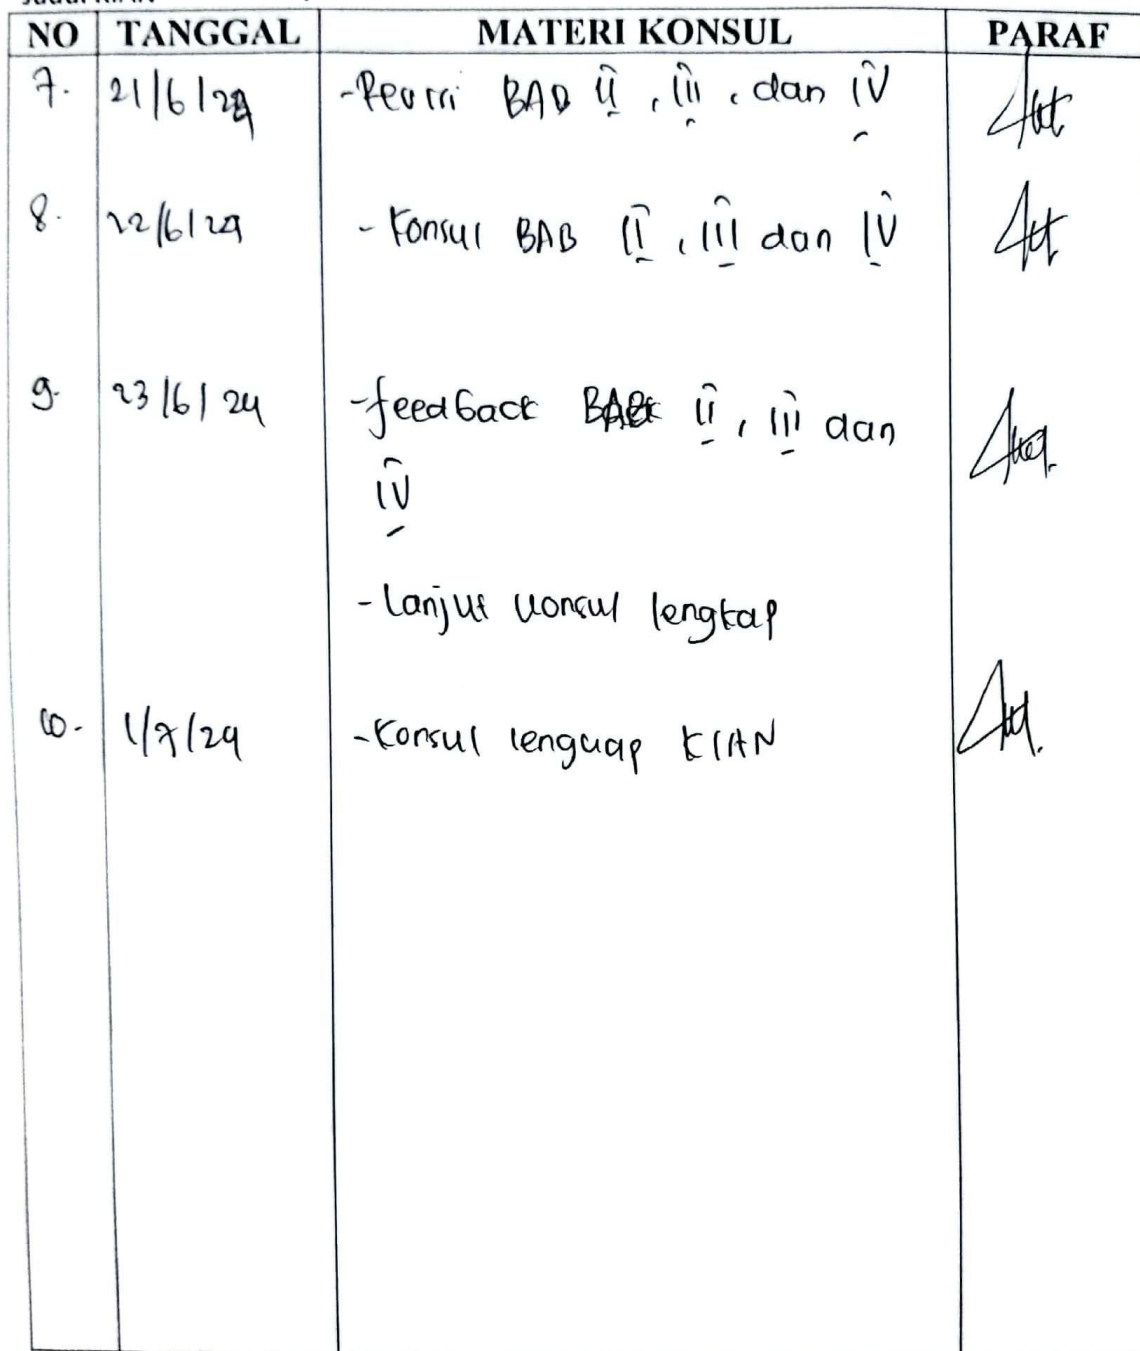 NO TANGGAL MATERI KONSUL PARAF
7. 21/6/24 -Revisi BAB II, III, dan IV
8. 22/6/24 - Konsul BAB II, III dan IV
9. 23/6/24 -feedback BAB II, III dan
IV
- Lanjut konsul lengkap
10. 1/7/24 -Konsul lengkap KIAN